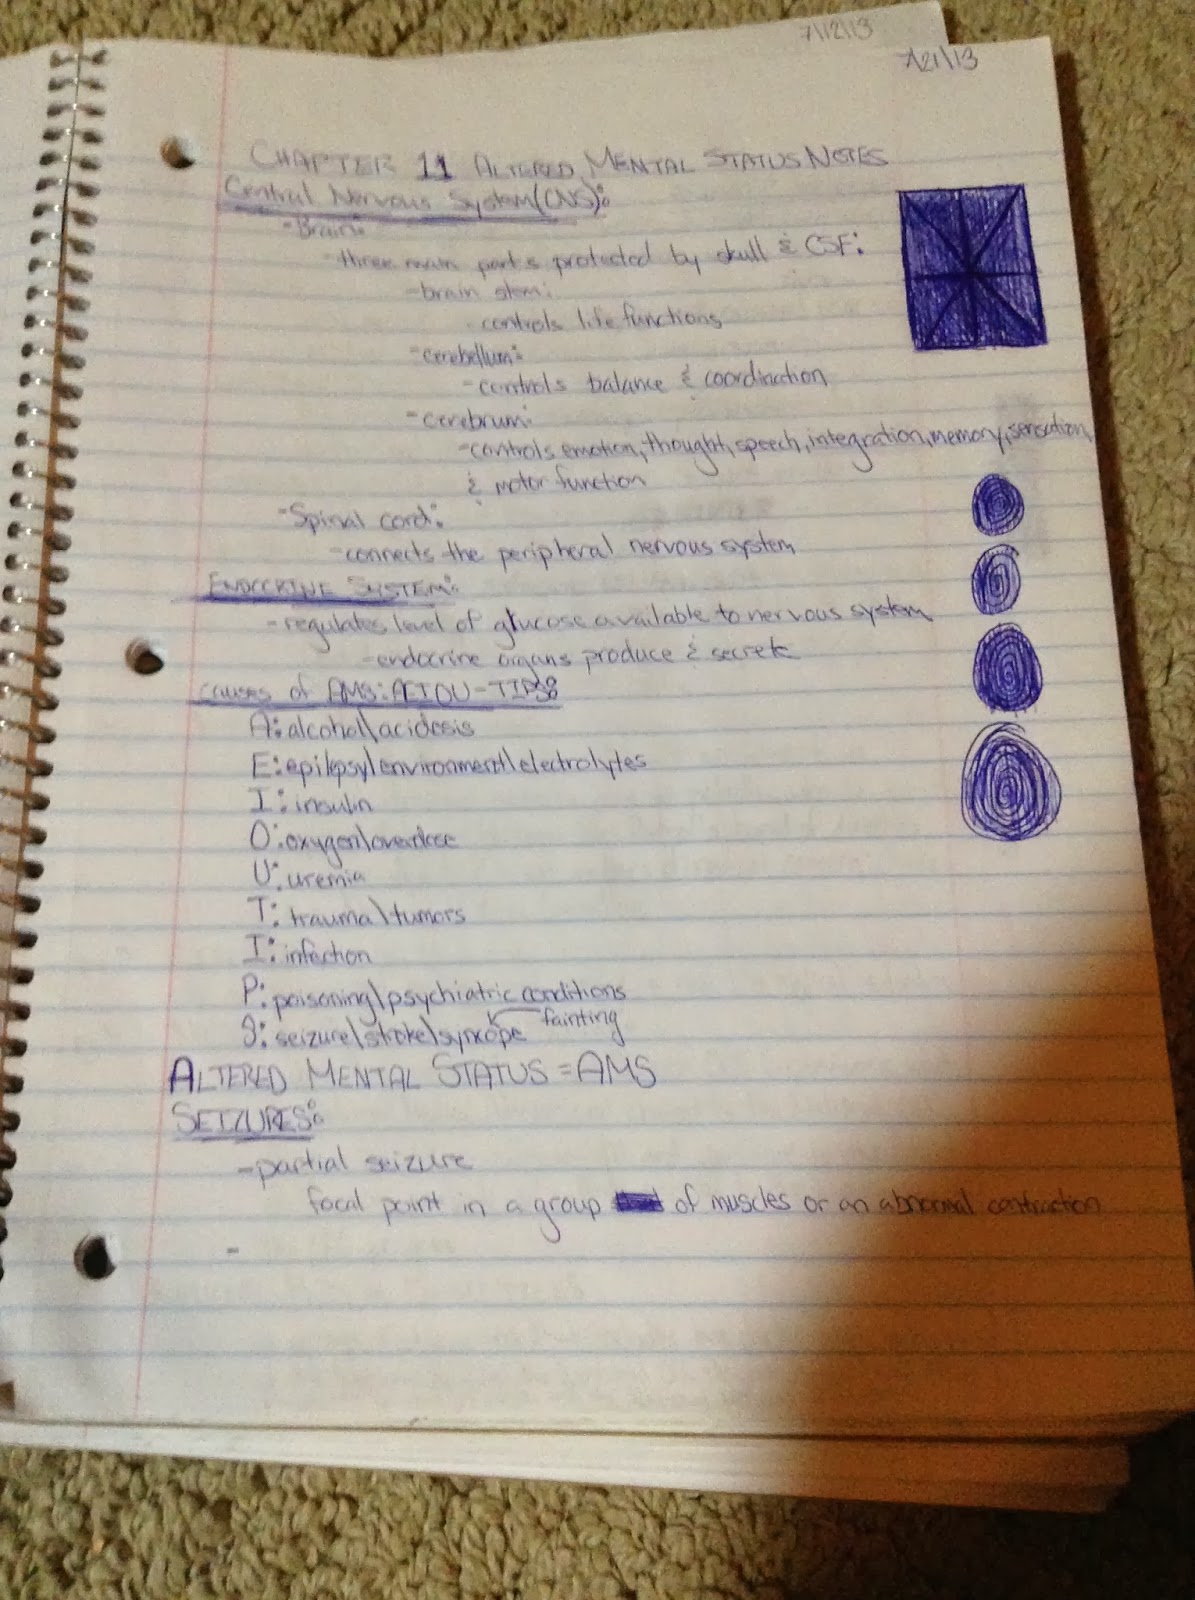 7/12/13
7/21/13
CHAPTER 11 ALTERED MENTAL STATUS NOTES
Central Nervous System (CNS):
-Brain:
-three main parts protected by skull & CSF:
-brain stem:
-controls life functions
-cerebellum:
-controls balance & coordination
-cerebrum:
-controls emotion, thought, speech, integration, memory, sensation,
& motor function
-Spinal cord:
-connects the peripheral nervous system
ENDOCRINE SYSTEM:
-regulates level of glucose available to nervous system
-endocrine organs produce & secrete
causes of AMS: AEIOU-TIPS:
A: alcohol\acidosis
E: epilepsy\environment\electrolytes
I: insulin
O: oxygen\overdose
U: uremia
T: trauma\tumors
I: infection
P: poisoning\psychiatric conditions
fainting
S: seizure\stroke\syncope
ALTERED MENTAL STATUS = AMS
SEIZURES:
-partial seizure
focal point in a group of muscles or an abnormal contraction
-